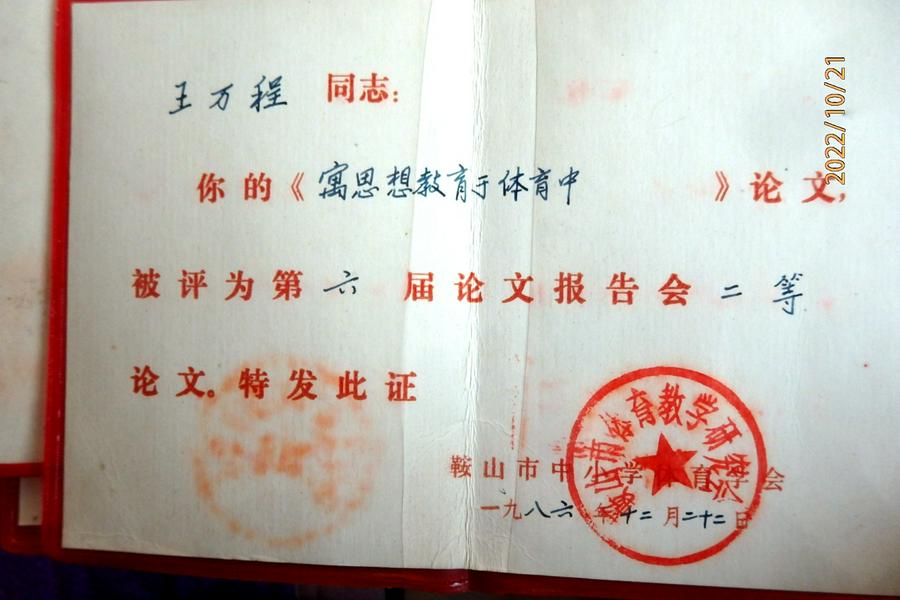 王万程 同志：
你的《寓思想教育于体育中》论文，
被评为第六届论文报告会二等
论文。特发此证
鞍山市中小学体育学会
一九八六年十二月二十二日
鞍山市体育教学研究会
2022/10/21